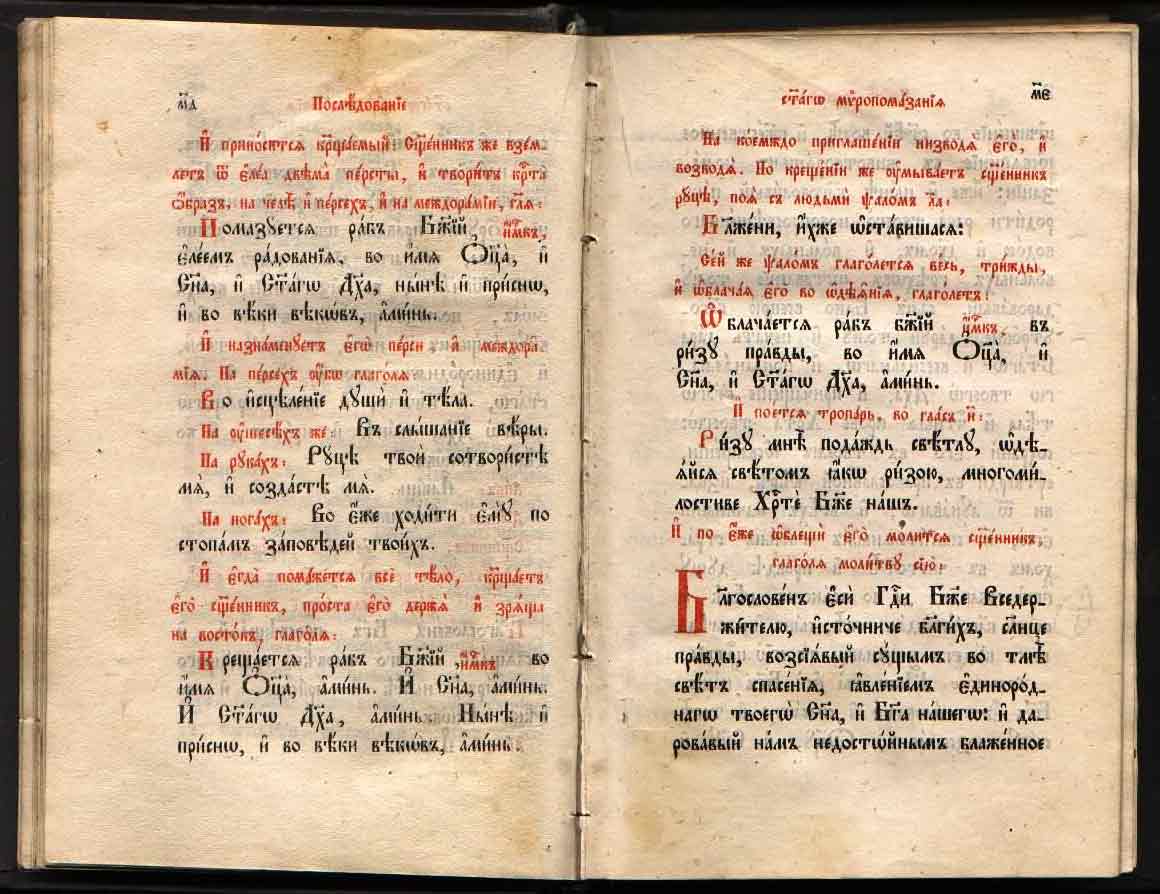 м҃д
Послѣ́дованїе
И҆ прино́сится кр҃ща́емый. Сщ҃е́нникъ же взе́м-
летъ ѿ є҆ле́а двѣма̀ пе́рсты, и҆ твори́тъ крⷭ҇та̀
ѻ҆́бразъ, на челѣ̀ и҆ пе́рсехъ, и҆ на междора́мїи, гл҃я:
Помазуется ра́бъ Бж҃їй и҆́мкъ,
є҆ле́емъ ра́дованїя, во и҆́мя Ѻ҆ц҃а̀, и҆
Сн҃а, и҆ Ст҃а́гѡ Дх҃а, ны́нѣ и҆ при́снѡ,
и҆ во вѣ́ки вѣкѡ́въ, а҆ми́нь.
И҆ назна́менуетъ є҆гѡ̀ пе́рси и҆ междора́-
мїя. На пе́рсехъ ᲂу҆́бѡ глаго́ля
Во и҆сцѣле́нїе дꙋшѝ и҆ тѣ́ла.
На ᲂу҆шесѣ́хъ же: Въ слы́шанїе вѣ́ры.
На рꙋка́хъ: Рꙋ́цѣ твоѝ сотвори́стѣ
мя̀, и҆ созда́стѣ мя̀.
На нога́хъ: Во є҆́же ходи́ти є҆мꙋ̀ по
стопа́мъ за́повѣдей твои́хъ.
И҆ є҆гда̀ пома́жется всѐ тѣ́ло, кр҃ща́етъ
є҆го̀ сщ҃е́нникъ, про́ста є҆го̀ держя̀ и҆ зря́ща
на восто́къ, глаго́ля:
Креща́ется ра́бъ Бж҃їй и҆́мкъ во
и҆́мя Ѻ҆ц҃а̀, а҆ми́нь. И҆ Сн҃а, а҆ми́нь.
И҆ Ст҃а́гѡ Дх҃а, а҆ми́нь. Ны́нѣ и҆
при́снѡ, и҆ во вѣ́ки вѣкѡ́въ, а҆ми́нь.
м҃є
ст҃а́гѡ мѵропома́занїя
На коемждо приглаше́нїи низводя̀ є҆го̀, и҆
возводя̀. По креще́нїи же ᲂу҆мыва́етъ сщ҃е́нникъ
рꙋ́цѣ, поя̀ съ людьмѝ ѱало́мъ л҃а:
Бл҃же́ни, и҆́хже ѡ҆ста́вишася:
Се́й же ѱало́мъ глаго́лется ве́сь, три́жды,
и҆ ѡ҆блача́я є҆го̀ во ѡ҆дѣѧ̑нїя, глаго́летъ:
Ѡ҆блача́ется ра́бъ бж҃їй и҆́мкъ, въ
ри́зꙋ пра́вды, во и҆́мя Ѻ҆ц҃а̀, и҆
Сн҃а, и҆ Ст҃а́гѡ Дх҃а, а҆ми́нь.
И҆ пое́тся тропа́рь, во гла́съ и҃:
Ри́зꙋ мнѣ̀ пода́ждь свѣ́тлꙋ, ѡ҆дѣ-
я́йся свѣ́томъ ꙗ҆́кѡ ри́зою, многоми́-
лостиве Хрⷭ҇тѐ Бж҃е на́шъ.
И҆ по є҆́же ѡ҆блещѝ є҆го̀ мо́лится сщ҃е́нникъ,
глаго́ля моли́твꙋ сїю̀:
Бл҃гослове́нъ є҆сѝ Гдⷭ҇и Бж҃е Вседер-
жи́телю, и҆сто́чниче бл҃ги́хъ, сл҃нце
пра́вды, возсїя́вый сꙋ́щымъ во тмѣ̀
свѣ́тъ спасе́нїя, ꙗ҆вле́нїемъ є҆диноро́д-
нагѡ твоегѡ̀ Сн҃а, и҆ Бг҃а на́шегѡ: и҆ да-
рова́вый на́мъ недосто́йнымъ блаже́нное